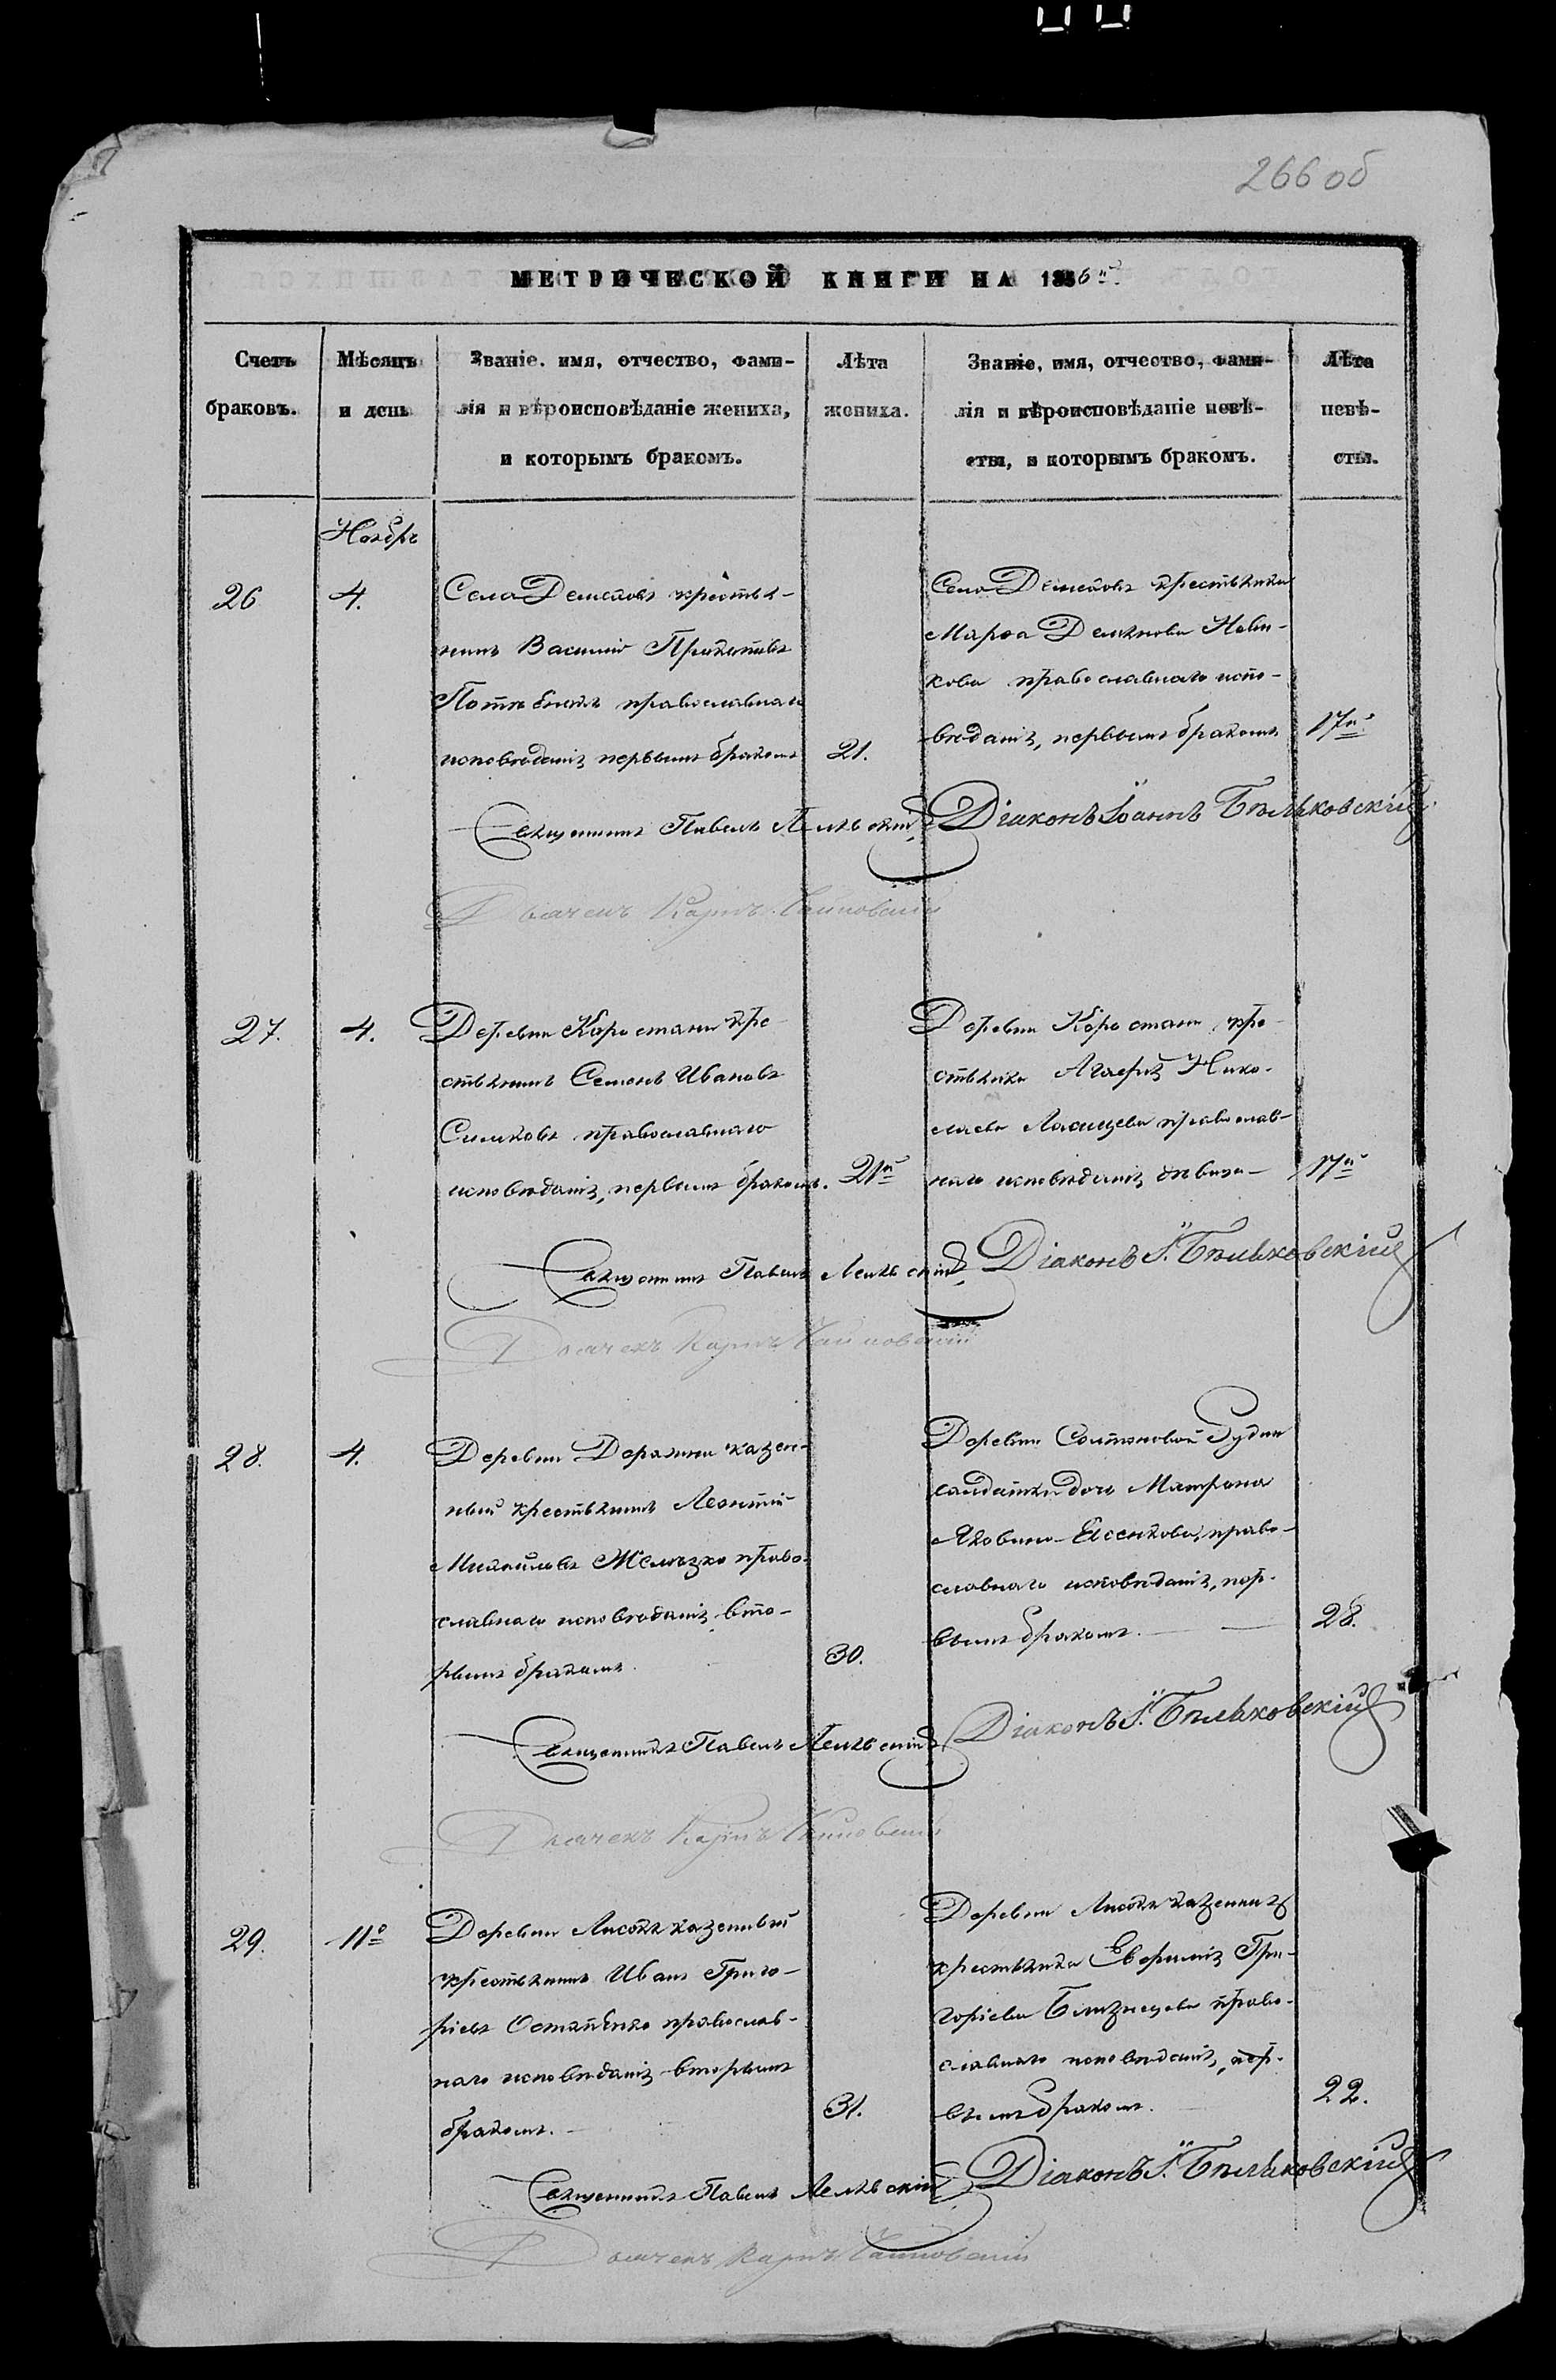 266 об
МЕТРИЧЕСКОЙ КНИГИ НА 1866й
Счетъ браковъ.
Мѣсяцъ и день
Званіе, имя, отчество, фами-
лія и вѣроисповѣданіе жениха,
и которымъ бракомъ.
Лѣта жениха.
Званіе, имя, отчество, фами-
лія и вѣроисповѣданіе невѣ-
сты, и которымъ бракомъ.
Лѣта невѣ-
сты.
Ноябрь
26
4.
Села Деменовъ крестья-
нинъ Василій
православнаго
исповѣданія, первымъ бракомъ
21.
Села Деменовъ крестьянка
Марфа Демянова Нови-
кова православнаго испо-
вѣданія, первымъ бракомъ
17ть
Священникъ Павелъ Діаконъ Іоаннъ Бѣльковскій
Дьячекъ Карпъ
27.
4.
Деревни Коростани кре-
стьянинъ Семенъ Ивановъ
Симаковъ православнаго
исповѣданія, первымъ бракомъ.
21й
Деревни Коростани кре-
стьянка Агафія Нико-
лаева православ-
наго исповѣданія дѣвица
17й
Священникъ Павелъ Діаконъ І. Бѣльковскій
Дьячекъ Карпъ
28.
4.
Деревни Деражни казен-
ный крестьянинъ Леонтій
Михайловъ Желѣзко право-
славнаго исповѣданія вто-
рымъ бракомъ
30.
Деревни Солтановой Рудни
солдатки дочь Матрона
Яковлева право-
славнаго исповѣданія, пер-
вымъ бракомъ.
28.
Священникъ Павелъ Діаконъ І. Бѣльковскій
Дьячекъ Карпъ
29.
11о
Деревни Лисокъ казенный
крестьянинъ Иванъ Григо-
ріевъ Остапенко православ-
наго исповѣданія вторымъ
бракомъ.
31.
Деревни Лисокъ казенная
крестьянка Евфимія Гри-
горіева Близнецова право-
славнаго исповѣданія, пер-
вымъ бракомъ.
22.
Священникъ Павелъ Діаконъ І. Бѣльковскій
Дьячекъ Карпъ